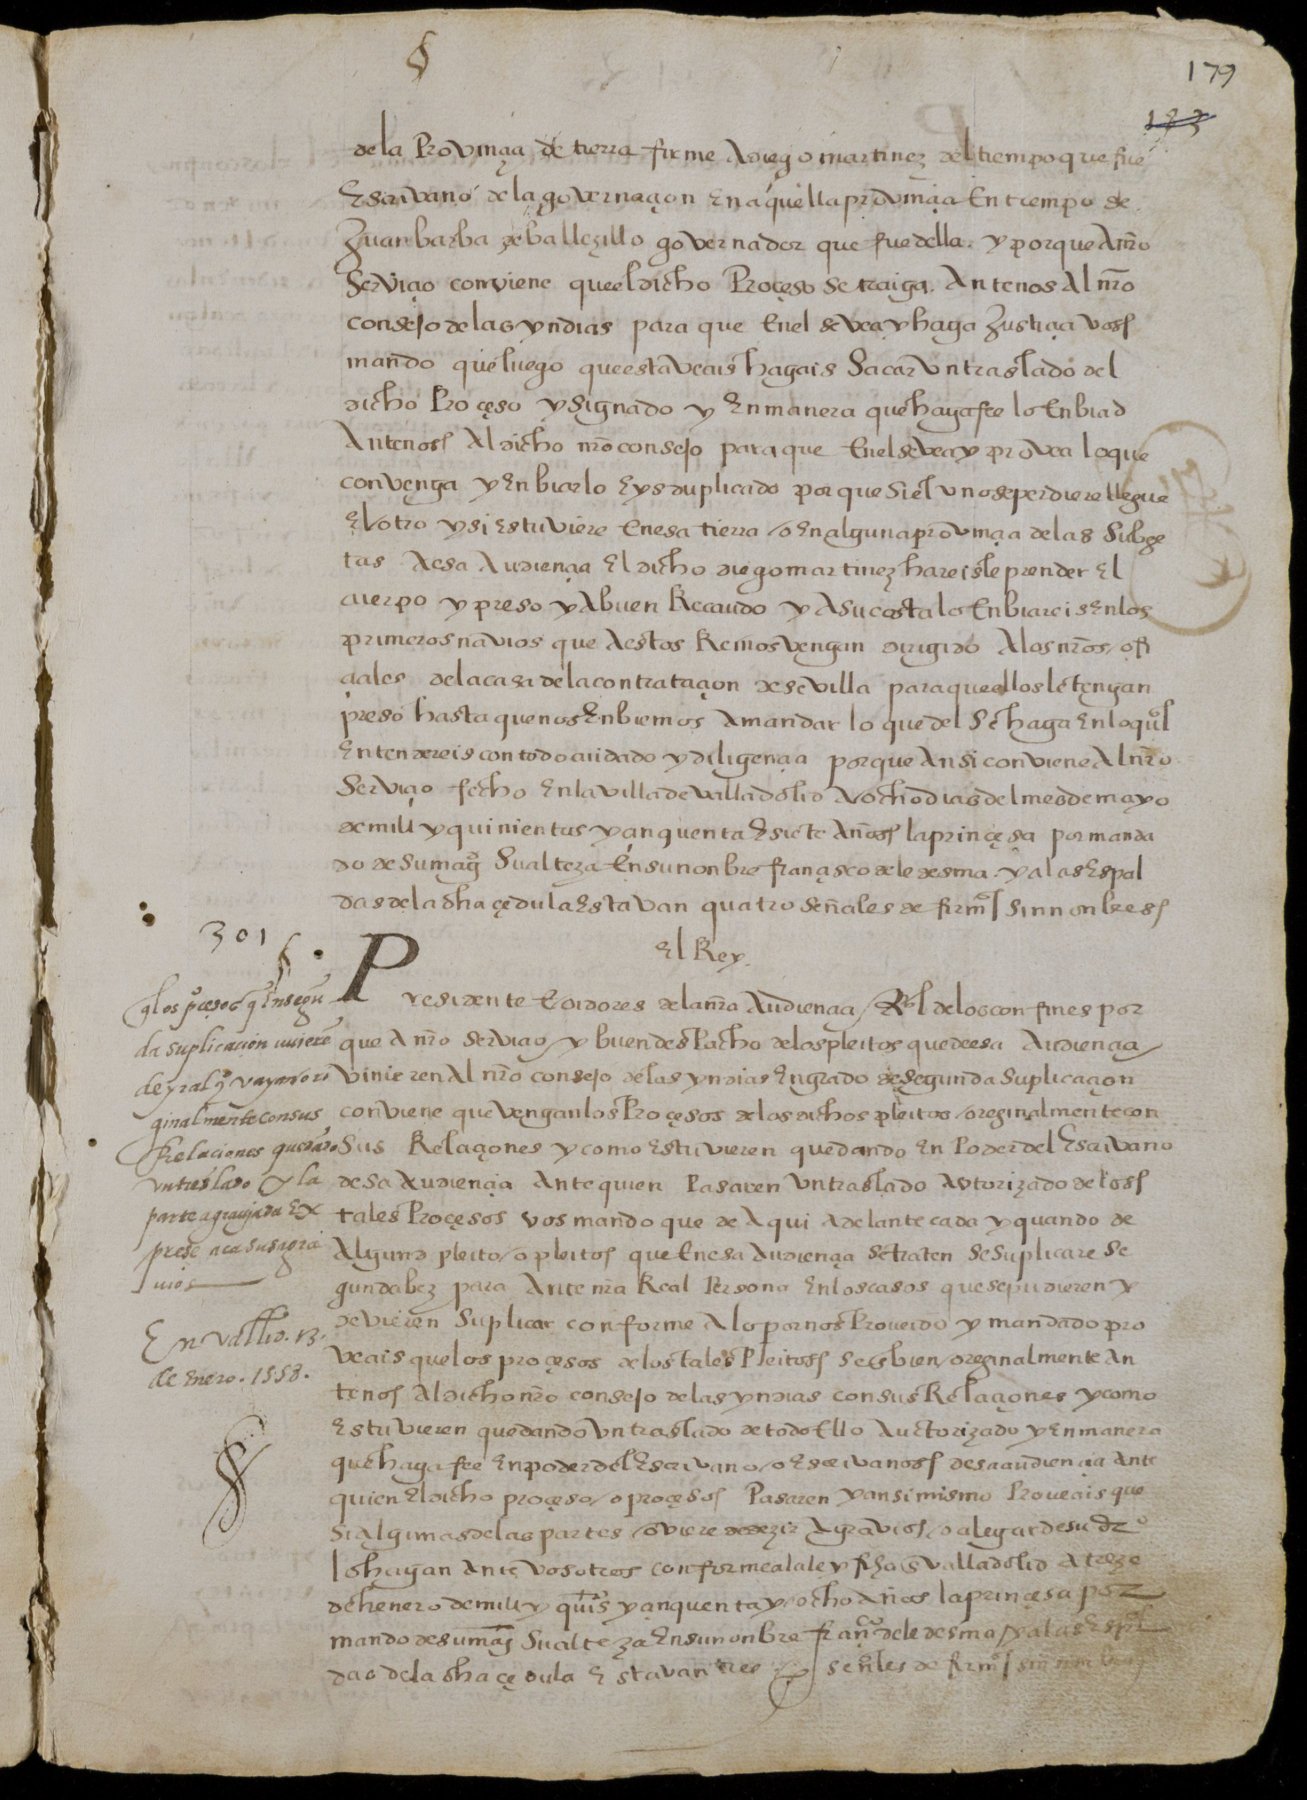 179
123
de la Provinçia de tierra firme A diego martinez del tiempo que fue
Escrivano de la governaçion En aquella provinçia En tiempo de
Juan barba de ballezillo governador que fue della. y porque A nro
serviçio conviene que el dicho Proçeso se traiga. Ante nos Al nro
consejo de las yndias para que En el se vea y haga Justiçia vos
mando que luego que esta veais hagais Sacar vn traslado del
dicho Proçeso y signado y En manera que haga fee lo Enbiad
Ante nos Al dicho nro consejo para que En el se vea y provea lo que
convenga y Enbiarlo Eys duplicado por que Si el vno se perdiere llegue
El otro y si Estuviere En esa tierra / o En alguna provinçia de las Subge
tas A esa Audiençia El dicho diego martinez hareisle prender El
cuerpo y preso y A buen Recaudo y A su costa lo Enbiareis En los
primeros navios que A estos Reinos vengan dirigido A los nros ofi
çiales de la casa de la contrataçion de sevilla para que ellos le tengan
preso hasta que nos Enbiemos A mandar lo que del Se haga En lo ql
Entendereis con todo cuidado y diligençia porque Ansi conviene Al nro
Serviçio fecho En la villa de valladolid A ocho dias del mes de mayo
de mill y quinientos y çinquenta E siete Años la prinçesa por manda
do de su magt Su alteza En su nonbre françisco de ledesma. y a las Espal
das de la dha çedula Estavan quatro señales de firmas sin nonbres
301
El Rey.
Presidente E oidores de la nra Audiençia / Rl de los confines por
que A nro serviçio / y buen desPacho de los pleitos que de esa Audiençia /
vinieren Al nro consejo de las yndias En grado de segunda Suplicaçion
conviene que vengan los Proçesos de los dichos pleitos / oreginalmente con
Sus Relaçiones y como Estuvieren quedando En Poder del Escrivano
desa Audiençia Ante quien Pasaren vn traslado Avtorizado de los
tales Proçesos vos mando que de Aqui Adelante cada y quando de
Algund pleito / o pleitos que En esa Audiençia se traten se Suplicare Se
gunda bez para Ante nra Real Persona En los casos que se pudieren y
devieren Suplicar conforme A lo por nos Proveido y mandado pro
veais que los proçesos de los tales Pleitos se Enbien / oreginalmente An
te nos Al dicho nro consejo de las yndias con sus Relaçiones y como
Estuvieren quedando vn traslado de todo Ello Auctorizado y En manera
que haga fee En poder del Escrivano / o Escrivanos desa audiençia Ante
quien El dicho proçeso / o proçesos Pasaren y ansimismo Proveais que
si Algunas de las partes / oviere de dezir Agravios / o alegar de su dro
lo hagan Ante vosotros conforme a la ley fha En valladolid A treze
de henero de mill y quis y çinquenta y ocho Años la prinçesa por
mando de su magt Su alteza En su nonbre franco de ledesma / y a las Espal
das de la dha çedula Estavan tres señles de firmas sin nonbres
q los pçesos q En segũ
da suplicacion uuierẽ
de yr al q vayan ori
ginalmente con sus
Relaciones quedãdo
vn treslado y la
parte agrauiada Ex
prese aca sus agra
uios
En Vallid. 13.
de Enero. 1558.